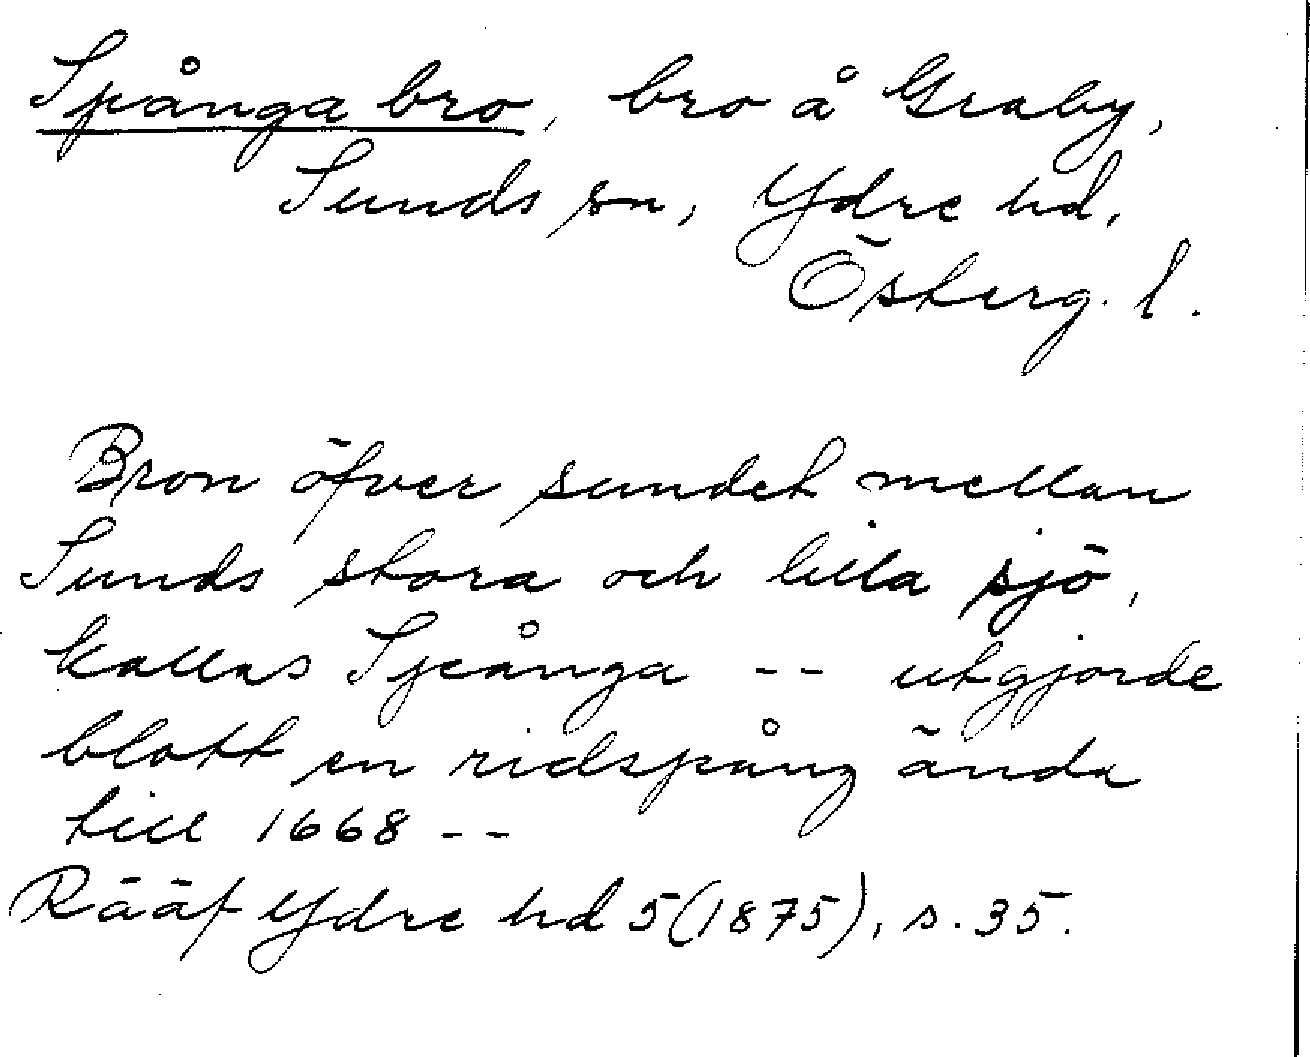 Spånga bro, bro å Graby,
Sunds sn, Ydre hd.
Österg. l.
Bron öfver sundet mellan
Sunds stora och lilla sjö,
kallas Spånga -- utgjorde
blott en ridspång ända
till 1668 --
Rääf Ydre hd 5 (1875), s. 35.